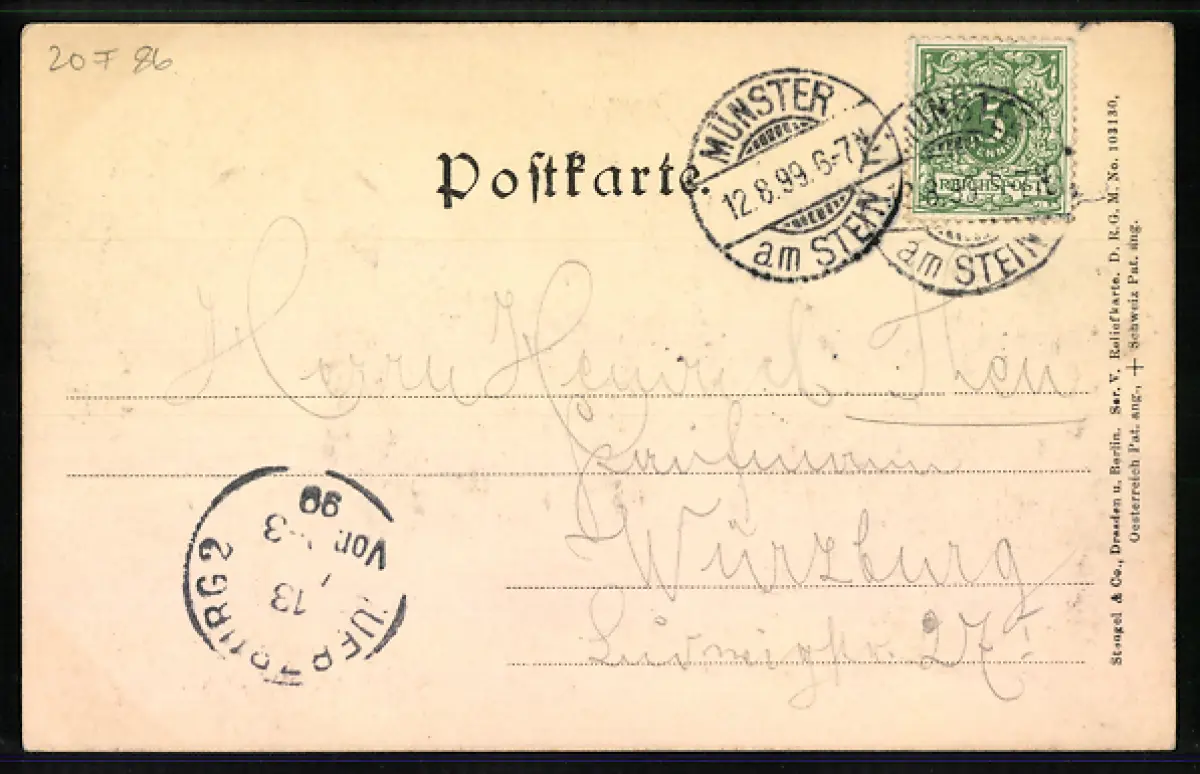 20 F 86
Postkarte.
MÜNSTER
12.8.99.6-7N.
am STEIN
MÜNST
8.99.6-7N
am STEIN
5
PFENNIG
REICHSPOST
Herrn Heinrich Theu
Kaufmann
Würzburg
Ludwigstr. 27!
WUERZBURG 2
13
Vor. -3
99
Stengel & Co., Dresden u. Berlin. Ser. V. Reliefkarte. D. R. G. M. No. 103130,
Oesterreich Pat. ang., + Schweiz Pat. ang.